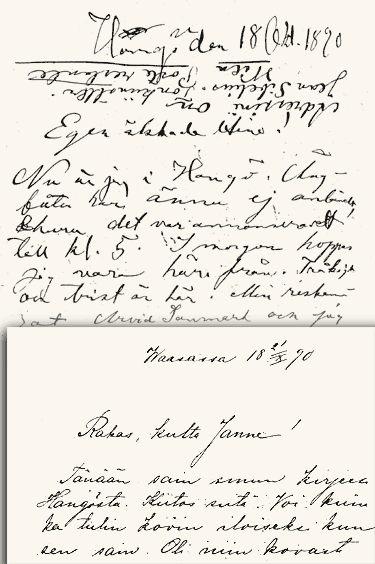 Hangö den 18 Okt. 1890
Adressen: om
Jean Sibelius. Tonkünstler.
Wien Poste restante
Egen älskade Aino!
Nu är jag i Hangö. Ång-
båten har ännu ej anländt
ehuru det var annonseradt
till kl. 5. I morgon hoppas
jag vara härifrån. Tråkigt
och trist är här. Min
Arvid och jag
Waasassa 18 21/X 90
Rakas, kulta Janne!
Tänään sain sinun kirjeen
Hangosta. Kiitos siitä. Voi kuin
ka tulin kovin iloiseksi kun
sen sain. Oli niin kovasti